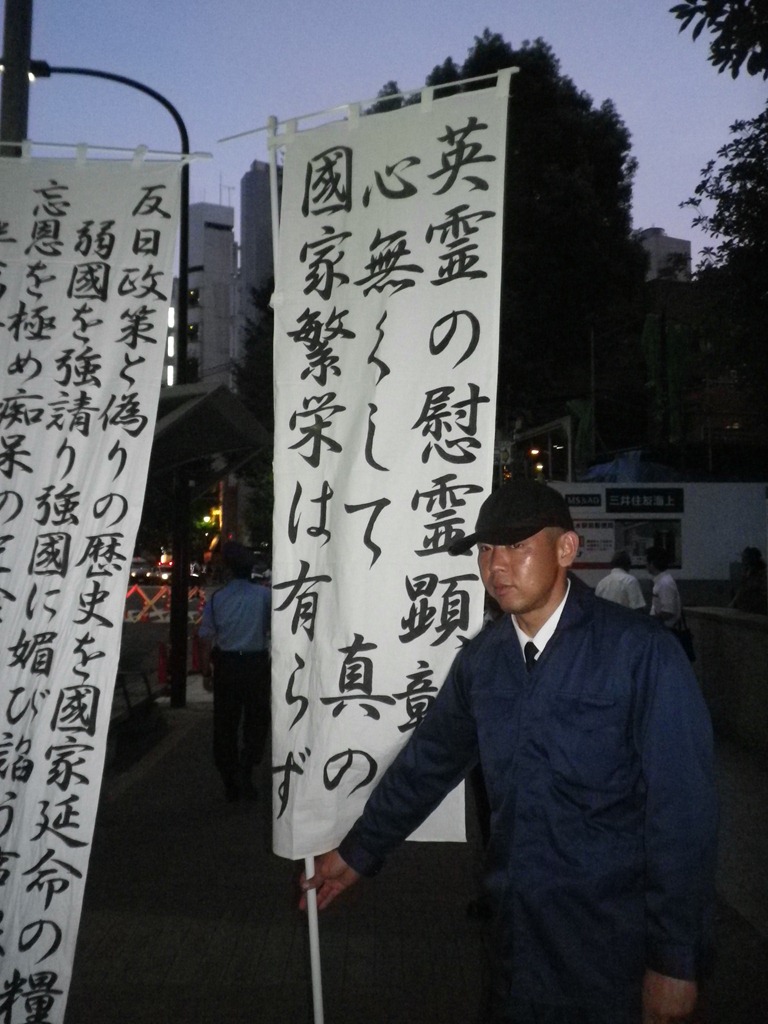 英霊の慰霊顕章
心無くして真の
國家繁栄は有らず
反日政策と偽りの歴史を國家延命の糧
弱國を強請り強國に媚び諂う
忘恩を極め痴呆の
MS&AD 三井住友海上